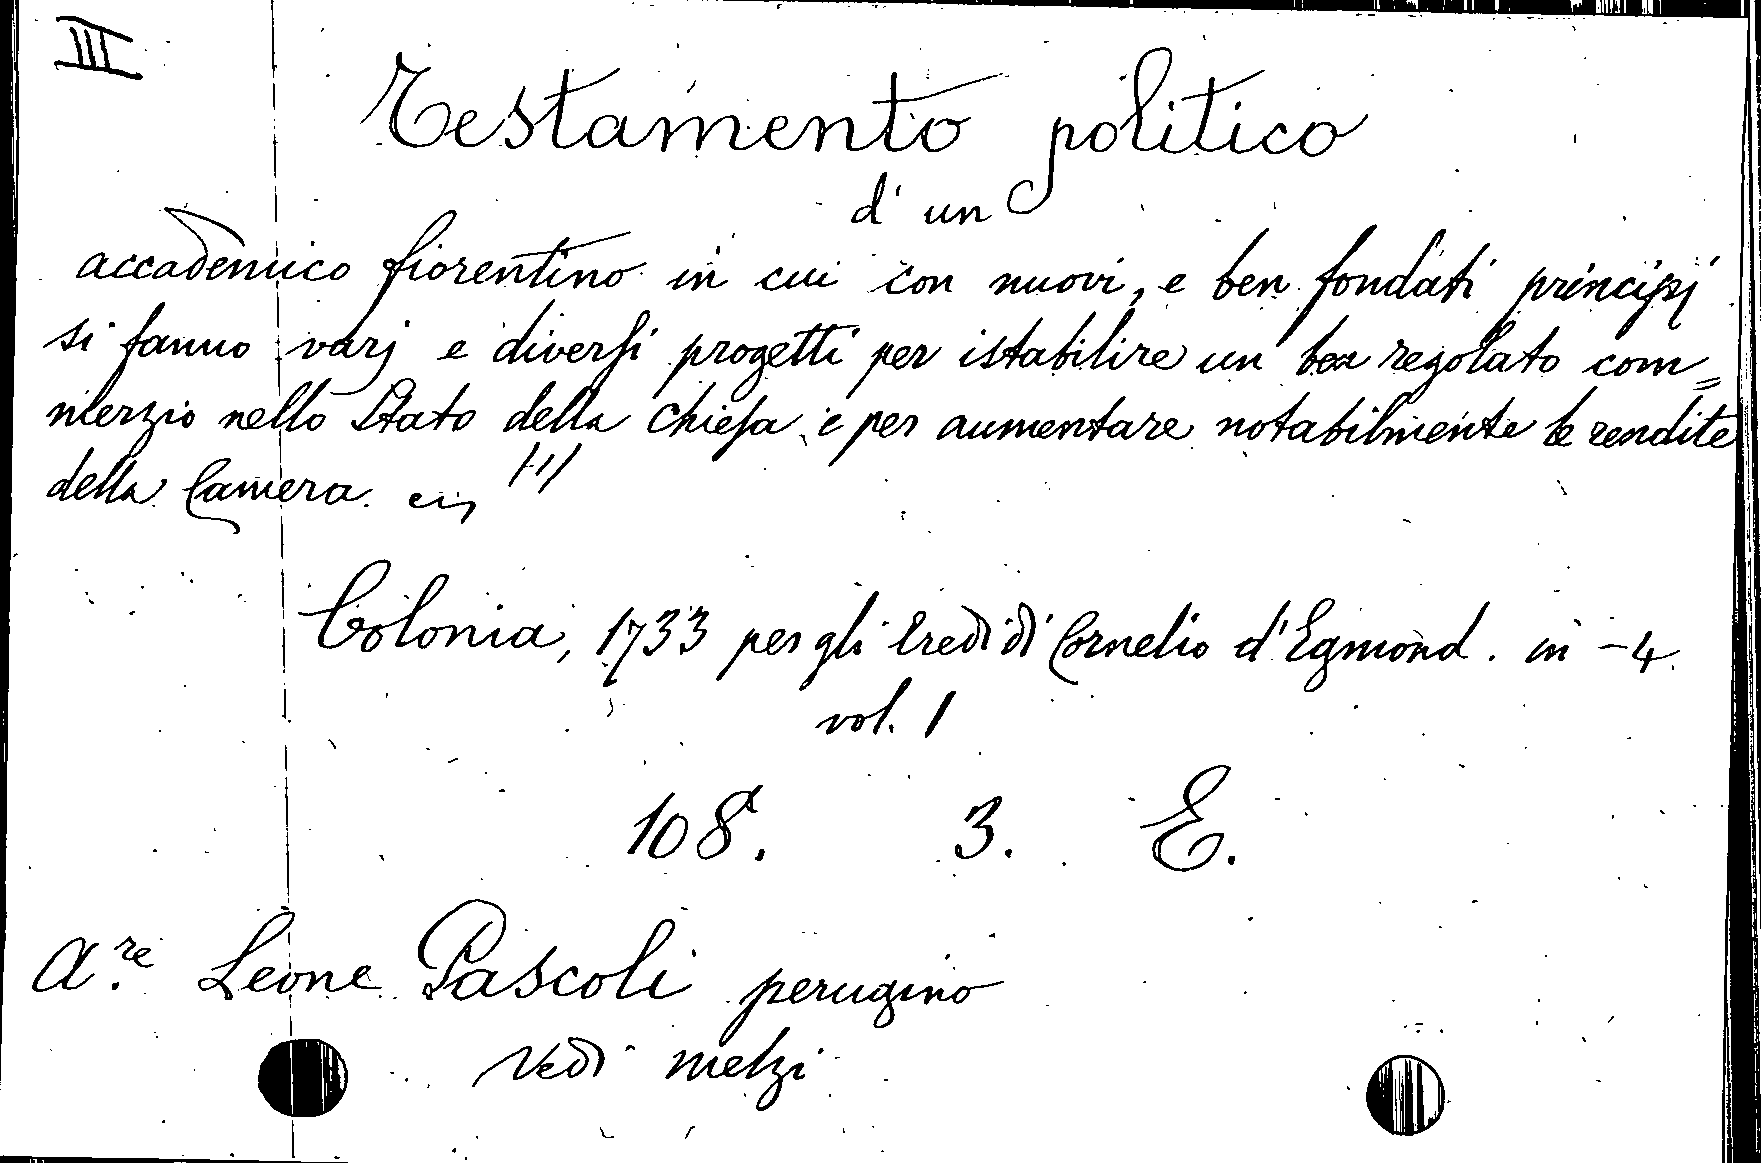 III
Testamento politico
d'un
accademico fiorentino in cui con nuovi, e ben fondati principj
si fanno varj e diversi progetti per istabilire un ben regolato com=
merzio nello Stato della Chiesa, e per aumentare notabilmente le rendite
della Camera.
Colonia, 1733 per gli Eredi di Cornelio d'Egmond. in -4.
vol. 1
108. 3. E.
A.re Leone Pascoli perugino
Vedi melzi